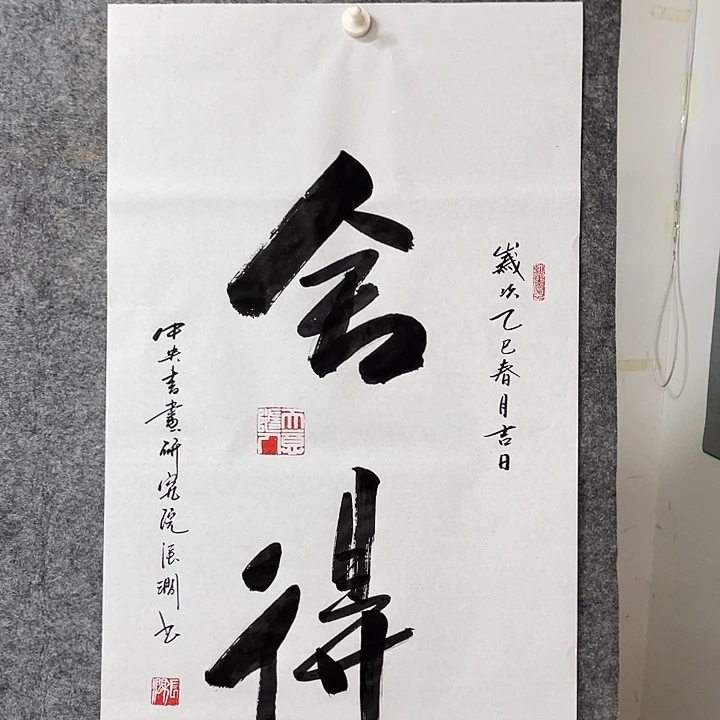 歲次乙巳春月吉日
舍得
中央書畫研究院張书